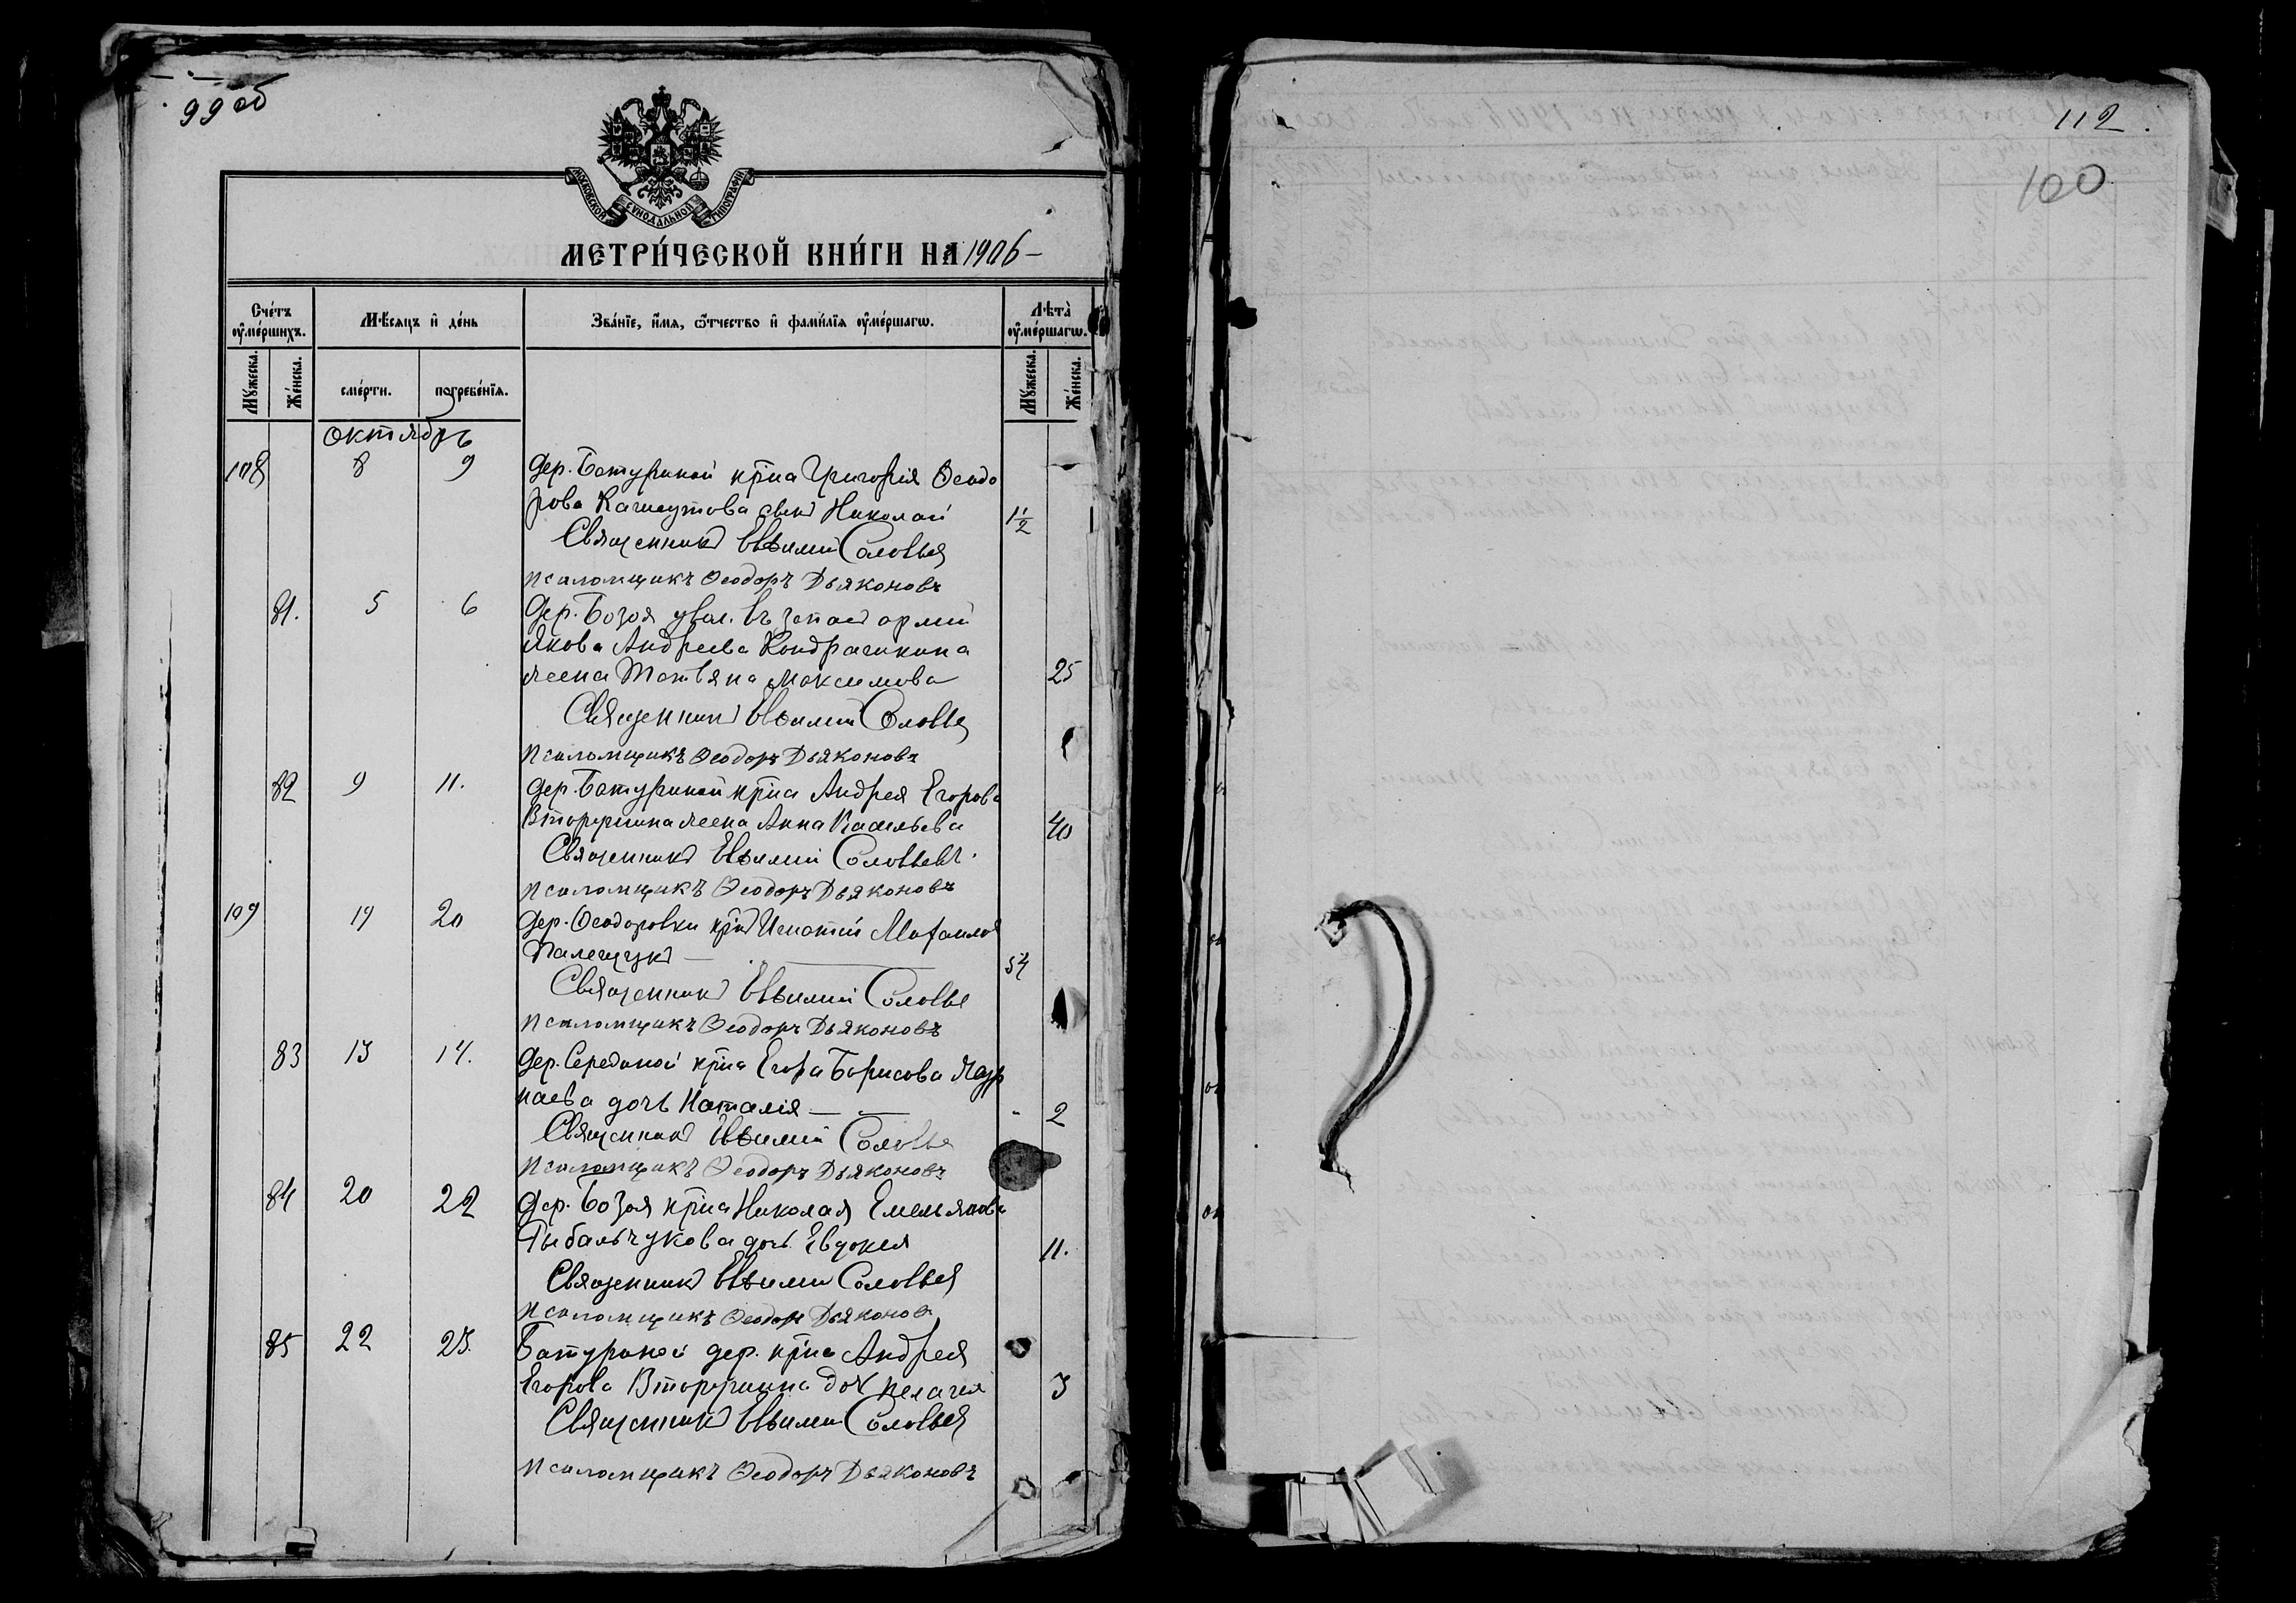 99 об
МОСКОВСКОЙ СѴНОДАЛЬНОЙ ТИПОГРАФІИ
МЕТРИ́ЧЕСКОЙ КНИ́ГИ НА 1906 –
Сче́тъ ᲂу҆ме́ршихъ.
Мѣ́сяцъ и҆ де́нь
Зва́нїе, и҆́мя, ѻ҆́тчество и҆ фами́лїя ᲂу҆ме́ршагѡ.
Лѣ́та ᲂу҆ме́ршагѡ.
Мꙋ́жеска.
Же́нска.
сме́рти.
погребе́нїя.
Мꙋ́жеска.
Же́нска.
октябрь
108 8 9 Дер. Батуриной кр̃на Григорія Ѳеодо
рова сынъ Николай 1 1/2
Священникъ Евѳимій Соловьев
псаломщикъ Ѳеодоръ Дьяконовъ
81. 5 6 Дер. Бозоя увол. въ запас арміи
Якова Андреева Кондрашкина
жена Татьяна Максимова 25
Священникъ Евѳимій Соловьев
псаломщикъ Ѳеодоръ Дьяконовъ
82 9 11. дер. Батуриной кр̃на Андрея Егорова
Вторушина жена Анна Васильева 40
Священникъ Евѳимій Соловьевъ.
псаломщикъ Ѳеодоръ Дьяконовъ
109 19 20 Дер. Ѳеодоровки кр̃нъ Игнатій Михаилов
Палещукъ — 54
Священникъ Евѳимій Соловьев
псаломщикъ Ѳеодоръ Дьяконовъ
83 13 14. Дер. Серединой кр̃на Егора Борисова
дочь Наталія — — 2
Священникъ Евѳимій Соловьев
псаломщикъ Ѳеодоръ Дьяконовъ
84 20 22 Дер. Бозоя кр̃на Николая Емельянова
Рыбальчукова дочь Евдокия 11.
Священникъ Евѳимий Соловьев
псаломщикъ Ѳеодоръ Дьяконовъ
85 22 23. Батуриной дер. кр̃на Андрея
Егорова Вторушина доч Пелагея 3
Священникъ Евѳимий Соловьев
псаломщикъ Ѳеодоръ Дьяконовъ
112.
100